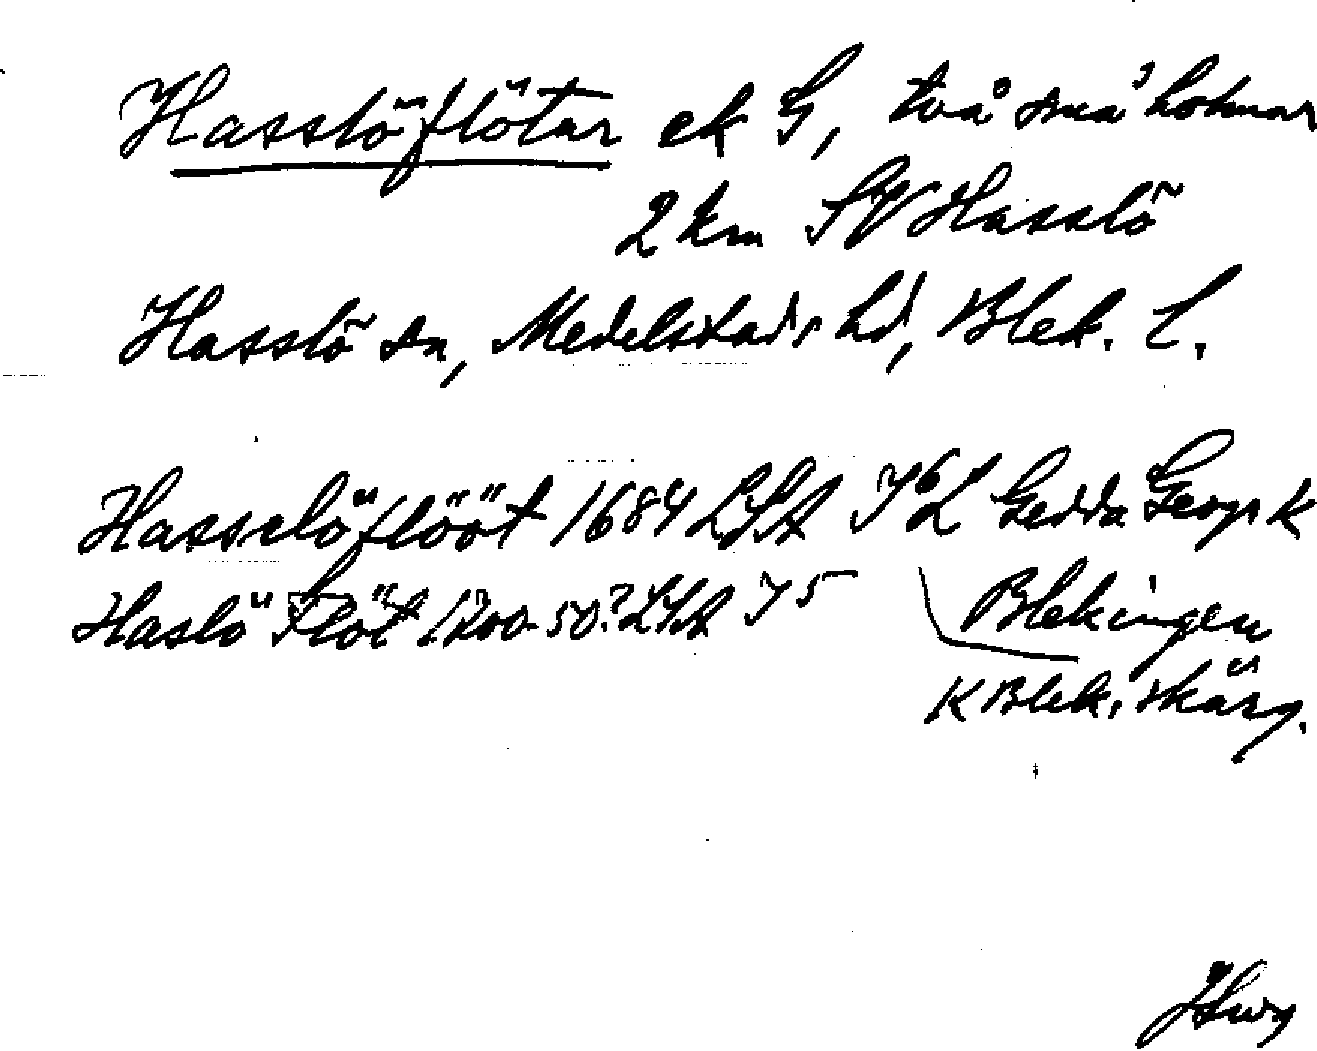 Hasslöflötar ek G, två små holmar
2 km SV Hasslö
Hasslö sn, Medelstads hd, Blek. l.
Hasselöflööt 1684 LSA Gedda Geogr K
Haslö Flöt 1700-50? LSA Y 5 Blekingen
K Blek. skärg.